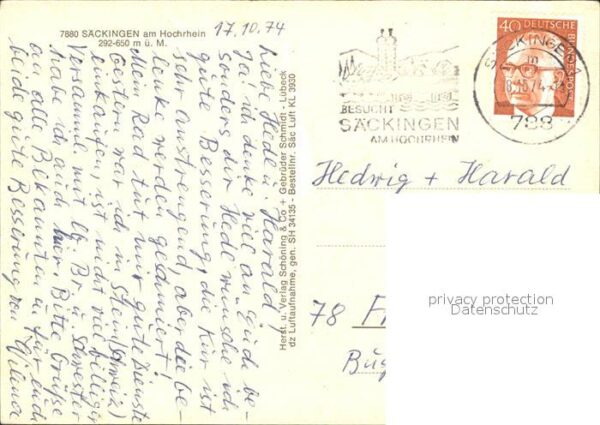 7880 SÄCKINGEN am Hochrhein
292-650 m ü. M.
17.10.74
Liebe Hede u. Harald!
Ja ich denke viel an Euch be-
sonders der Hede wünsche ich
gute Besserung, die Kur ist
sehr anstrengend, aber die Ge-
lenke werden gesalmiert!
Mein Rad tut mir gute Dienste
Gestern war ich in Stein (Schweiz)
einkaufen, ist nicht viel billiger
Versammle mit lb. Br. u. Schwester
habe ich auch hier. Bitte Grüße
an alle Bekannten u. für euch
beide gute Besserung von
Herst. u. Verlag Schöning & Co + Gebrüder Schmidt - Lübeck
dz Luftaufnahme, gen. SH 34135 - Bestellnr. Säc Luft KL 3930
BESUCHT
SÄCKINGEN
AM HOCHRHEIN
40 DEUTSCHE BUNDESPOST
SÄCKINGEN 1
788
Hedwig + Harald
78 F
Bug
privacy protection
Datenschutz